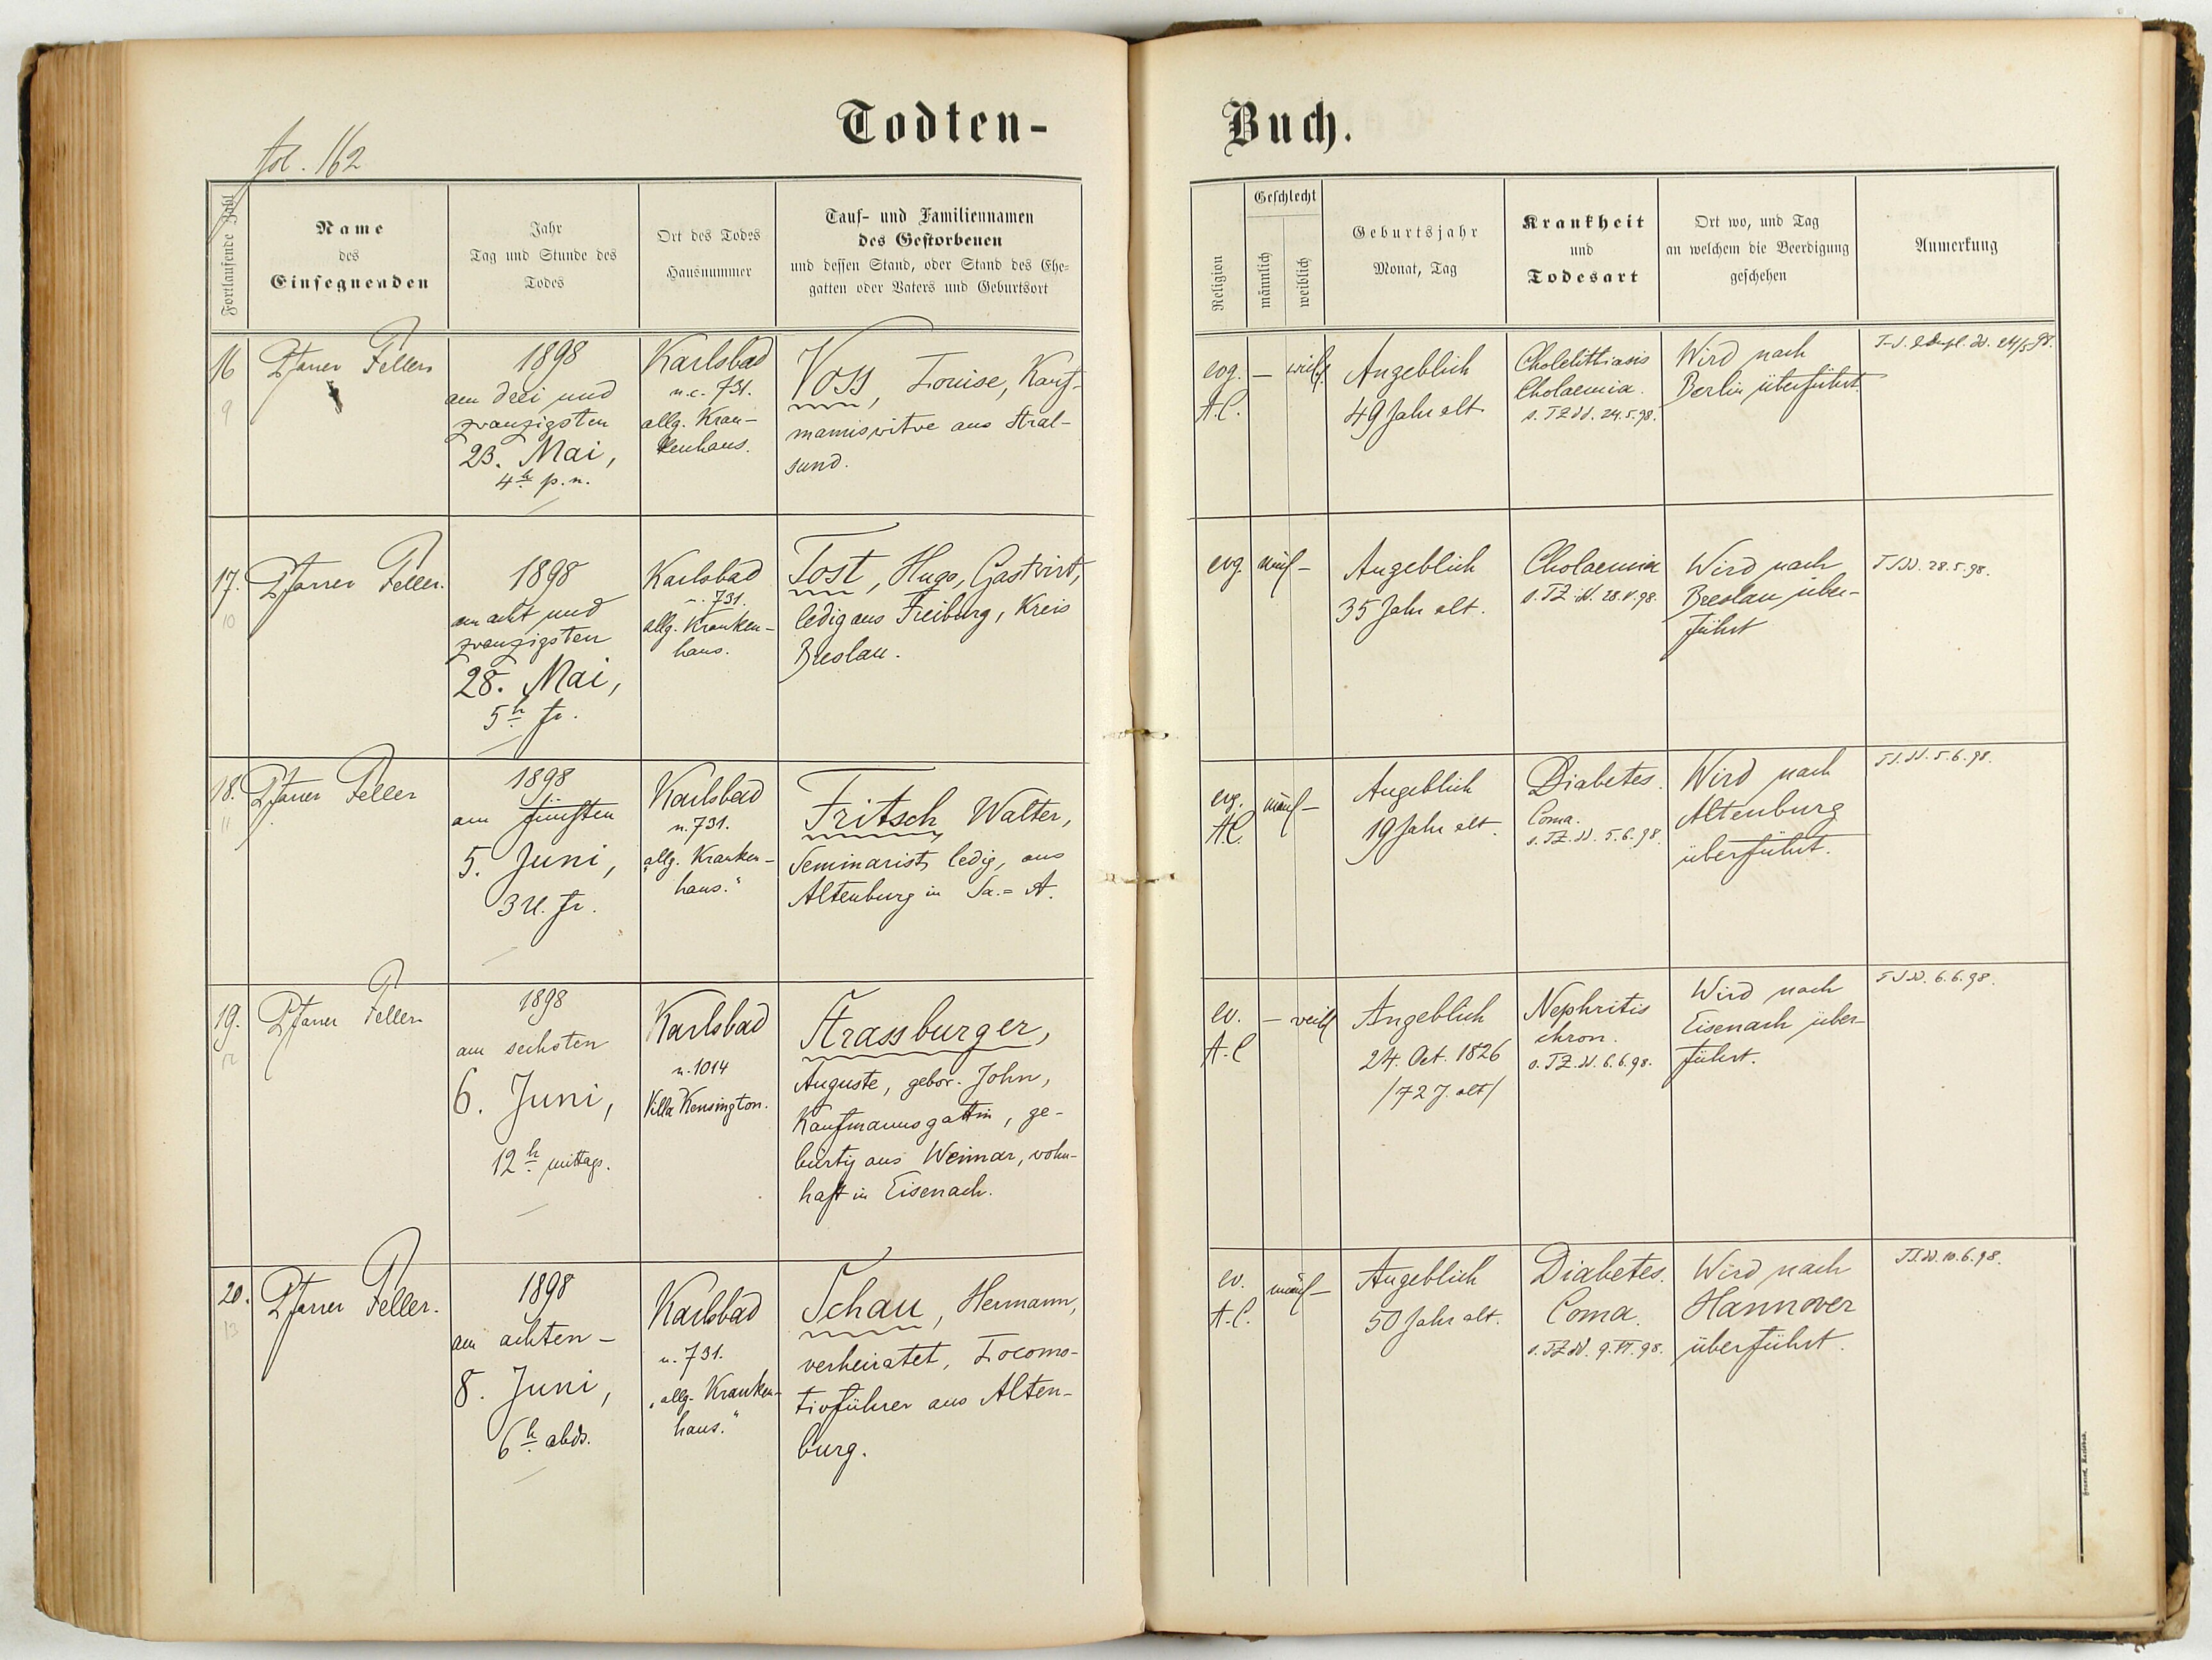 fol. 162
Todten-
Fortlaufende Zahl
Name
des
Einsegnenden
Jahr
Tag und Stunde des
Todes
Ort des Todes
Hausnummer
Tauf- und Familiennamen
des Gestorbenen
und dessen Stand, oder Stand des Ehe-
gatten oder Vaters und Geburtsort
16
9
Pfarrer Feller
1898
am drei und
zwanzigsten
23. Mai,
4h p.n.
Karlsbad
n.c. 731.
allg. Kran-
kenhaus.
Voss, Louise, Kauf-
mannswitwe aus Stral-
sund.
17.
10
Pfarrer Feller.
1898
am acht und
zwanzigsten
28. Mai,
5h fr.
Karlsbad
n. 731.
allg. Kranken-
haus.
Tost, Hugo, Gastwirt,
ledig aus Freiburg, Kreis
Breslau.
18.
11
Pfarrer Feller
1898
am fünften
5. Juni,
3 U. fr.
Karlsbad
n. 731.
"allg. Kranken-
haus."
Fritsch, Walter,
Seminarist, ledig, aus
Altenburg in Sa.-A.
19.
12
Pfarrer Feller
1898
am sechsten
6. Juni,
12h mittags.
Karlsbad
n. 1014
Villa Kensington.
Strassburger,
Auguste, gebor. John,
Kaufmannsgattin, ge-
bürtig aus Weimar, wohn-
haft in Eisenach.
20.
13
Pfarrer Feller.
1898
am achten -
8. Juni,
6h abds.
Karlsbad
n. 731.
"allg. Kranken-
haus."
Schau, Hermann,
verheiratet, Locomo-
tivführer aus Alten-
burg.
Buch.
Religion
Geschlecht
männlich
weiblich
Geburtsjahr
Monat, Tag
Krankheit
und
Todesart
Ort wo, und Tag
an welchem die Beerdigung
geschehen
Anmerkung
evg.
A.C.
— weibl.
Angeblich
49 Jahr alt.
Cholelithiasis
Cholaemia.
s. TZ dd. 24.5.98.
Wird nach
Berlin überführt.
dd. 24/5 98.
evg.
mnl —
Angeblich
35 Jahr alt.
Cholaemia
s. TZ dd. 28.V.98.
Wird nach
Breslau über-
führt
TS dd. 28.5.98.
evg.
A.C.
männl —
Angeblich
19 Jahr alt.
Diabetes.
Coma.
s. TZ. dd. 5.6.98.
Wird nach
Altenburg
überführt.
TS. dd. 5.6.98.
ev.
A.C
— weibl
Angeblich
24. Oct. 1826
/72 J. alt/
Nephritis
chron.
s. TZ. dd. 6.6.98.
Wird nach
Eisenach über-
führt.
TS dd. 6.6.98.
ev.
A.C.
männl —
Angeblich
50 Jahr alt.
Diabetes.
Coma.
s. TZ dd. 9.VI.98.
Wird nach
Hannover
überführt.
TS. dd. 10.6.98.